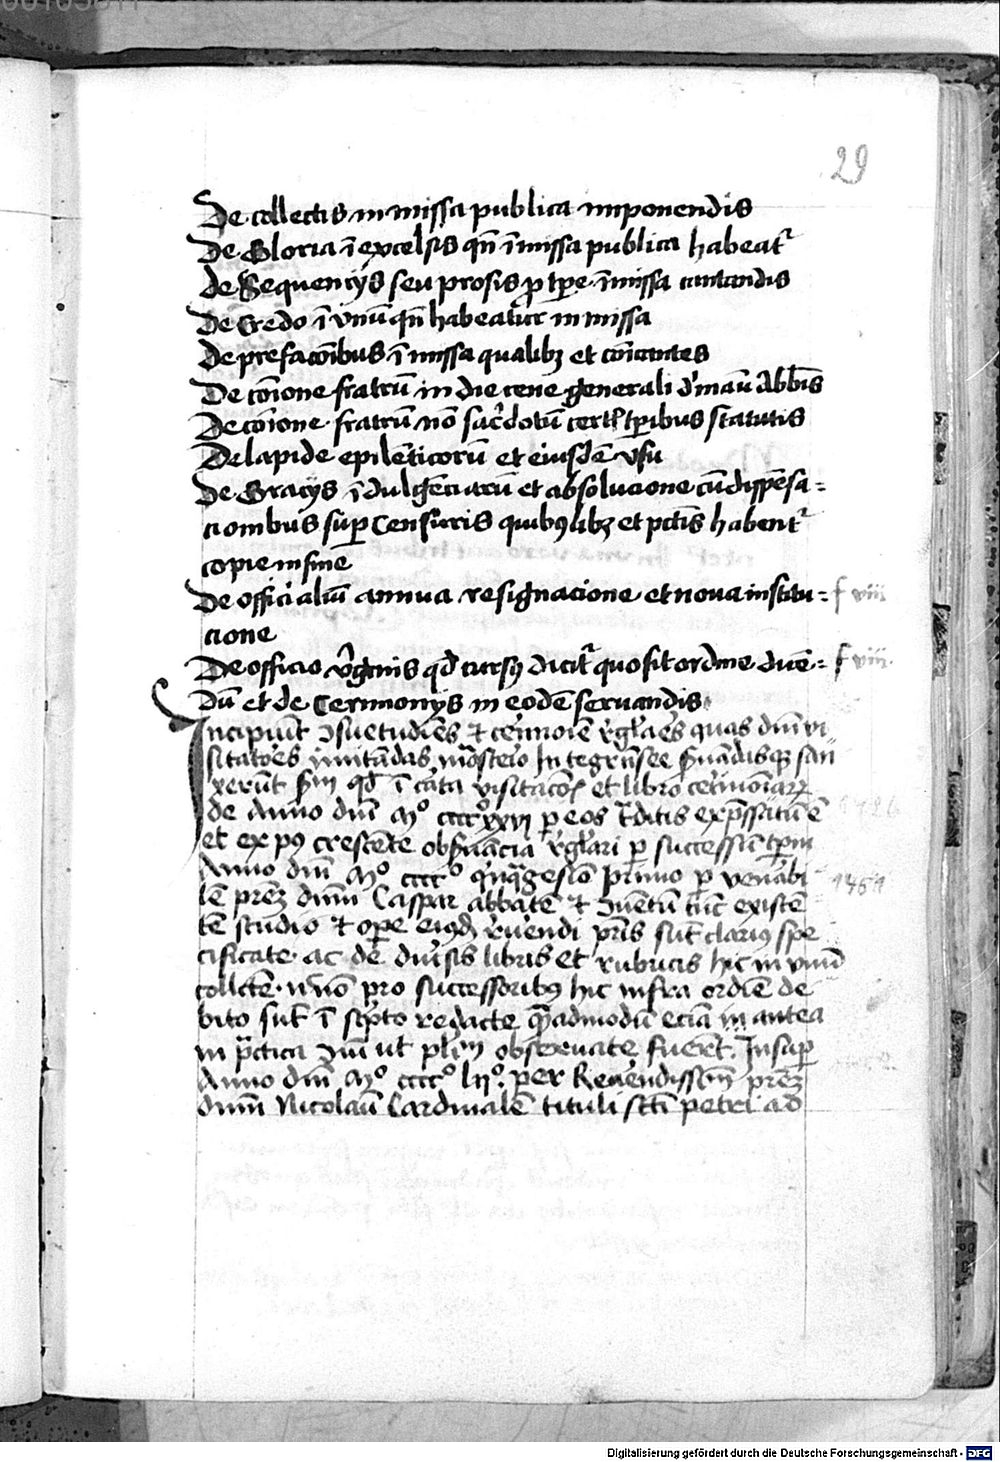 29
De collectis in missa publica imponendis
De Gloria ī excelsis qn̄ ī missa publica habeatr
de Sequencijs seu prosis p tpe ī missa cantandis
De Credo ī vnū qn̄ habeatur in missa
De prefacōibus ī missa qualibz et cōicantes
De cōione fratrū in die cene generali
De cōione fratrū nō sacdotū certis tpibus statutis
De lapide epilēticorū et eiusdē vsu
De Gracijs īdulgēciarū et absolucione cū dispēsa=
cionibus sup Censuris quibuslibz et pctīs habentr
copie in fine
De officialiū annua resignacione et noua institu= f viii
cione
De officio vginis qd cursus dicitr quo sit ordine dicē= f viii
dū et de Cerimonijs in eodē seruandis
Incipiūt 9suetudīes et cerimoīe rglāes quas dnī vi
sitatōes īmitādas mōsterio In tegrīsee suādasque san
xerūt sm qd ī carta visitacōis et libro cerimoīarz
de Anno dnī Mo ccccoxxvi p eos t̄ditis expssatū ē
et ex p9 crescēte obsuācia rglari p successiū tpm
Anno dnī Mo cccco q̄nq̄gesīo primo p venābi 1451
lē prēz dnm Caspar abbatē et 9uētū tūc existē
tē studio et ope eiusd ruendi pris sūt clarius spe
cificate ac de diusis libris et rubricis hic in vnū
collcte. n nō pro successoribus hic infra ordīe de
bito sūt ī scpto redacte q̄admodū eciā in antea
in pctica 9iū ut plim obseruate fuerūt. Insup
Anno dnī Mo cccco lijo. per Reuendissīm prēz
dnm Nicolaū Cardinalē tituli sctī petri ad
Digitalisierung gefördert durch die Deutsche Forschungsgemeinschaft - DFG